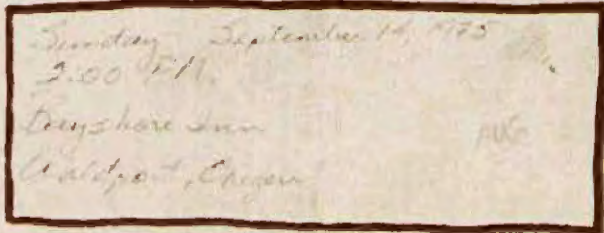 Sunday September 14, 1975
2:00 P.M.
Bayshore Inn
Waldport, Oregon